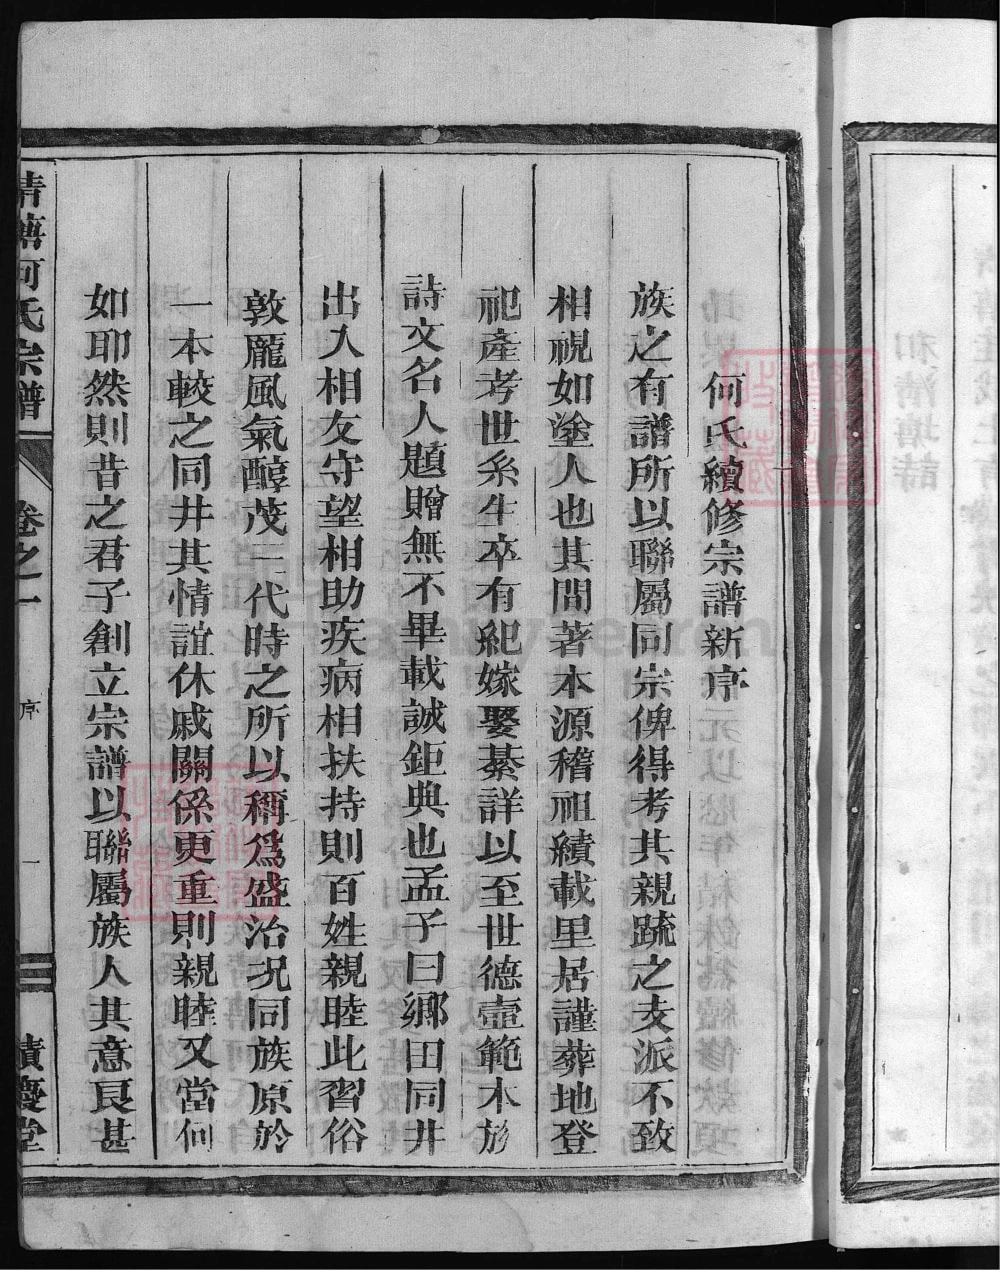 何氏續修宗譜新序
族之有譜所以聯屬同宗俾得考其親疏之支派不致
相視如塗人也其間著本源稽祖績載里居謹葬地登
祀產考世系生卒有紀嫁娶綦詳以至世德壼範木於
詩文名人題贈無不畢載誠鉅典也孟子曰鄉田同井
出入相友守望相助疾病相扶持則百姓親睦此習俗
敦龐風氣醇茂三代時之所以稱為盛治况同族原於
一本較之同井其情誼休戚關係更重則親睦又當何
如耶然則昔之君子創立宗譜以聯屬族人其意良甚
清塘何氏宗譜
卷之一
序
一
積慶堂